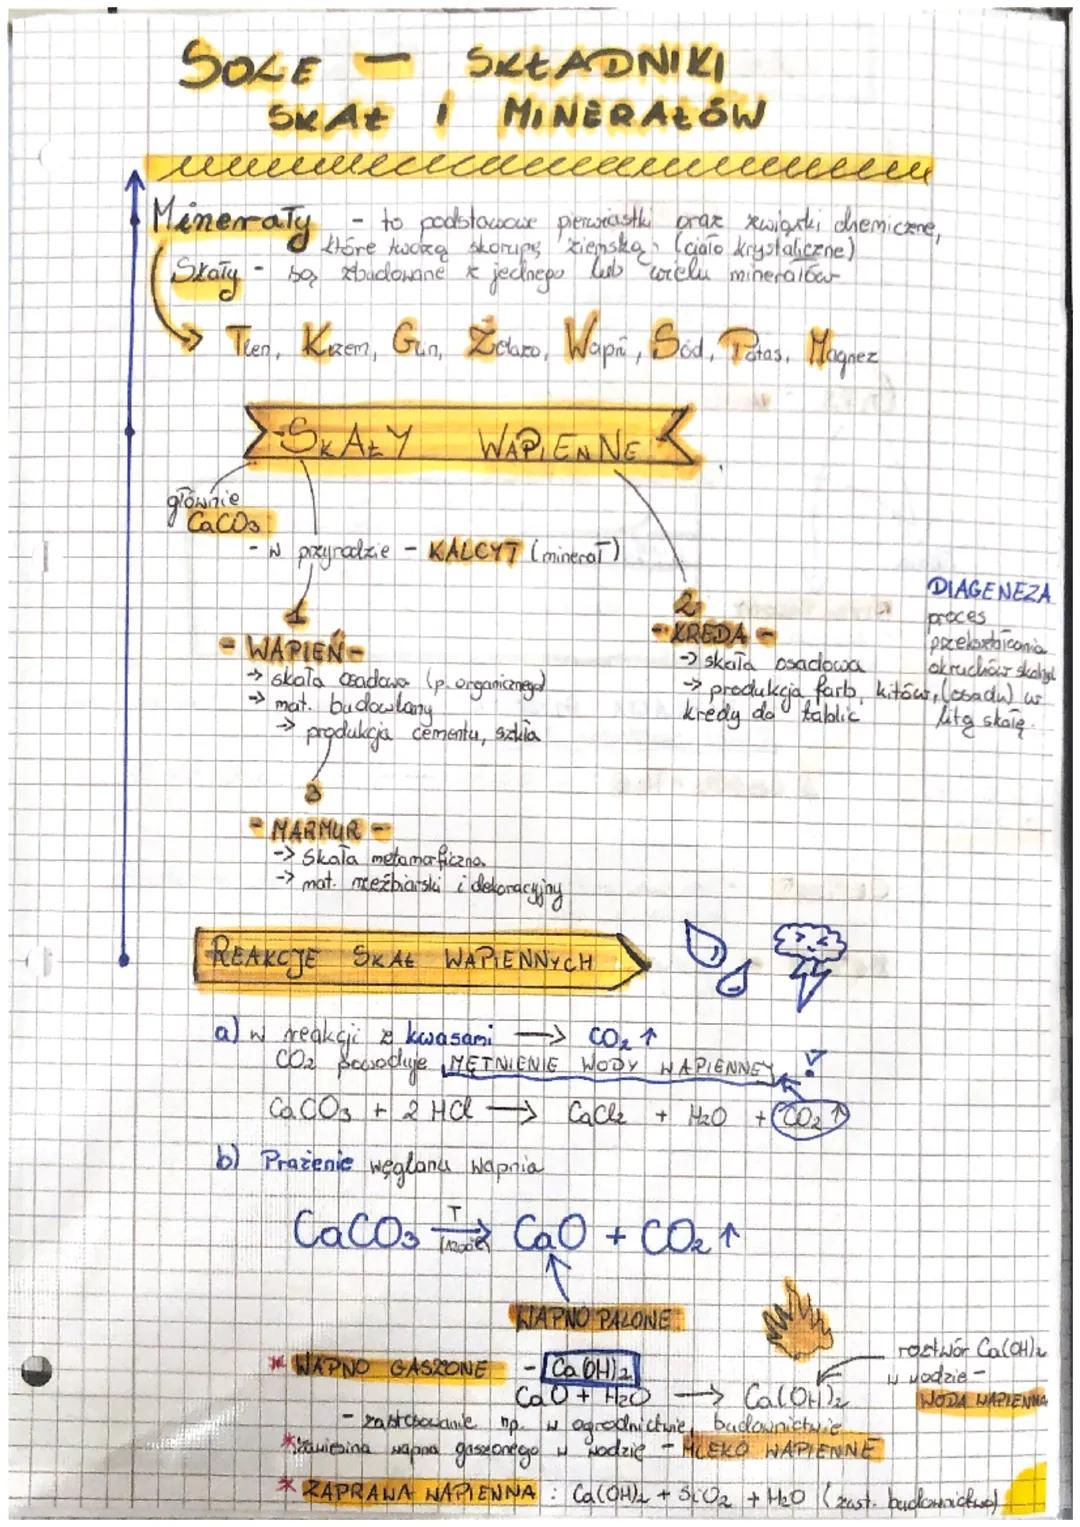 SOLE - SKŁADNIKI
SKAŁ I MINERAŁÓW
Minerały - to podstawowe pierwiastki oraz związki chemiczne,
które tworzą skorupę ziemską (ciało krystaliczne)
Skały - są zbudowane z jednego lub wielu minerałów
Tlen, Krzem, Glin, Żelazo, Wapń, Sód, Potas, Magnez
SKAŁY WAPIENNE
głównie
CaCO3
- w przyrodzie - KALCYT (minerał)
1
- WAPIEŃ -
→ skała osadowa (p. organicznego)
→ mat. budowlany
→ produkcja cementu, szkła
2
- KREDA -
→ skała osadowa
→ produkcja farb, kitów,
kredy do tablic
DIAGENEZA
proces
przekształcania
okruchów skalnych
(osadu) w
litą skałę.
3
- MARMUR -
→ skała metamorficzna
→ mat. rzeźbiarski i dekoracyjny
REAKCJE SKAŁ WAPIENNYCH
a) w reakcji z kwasami → CO2 ↑
CO2 powoduje MĘTNIENIE WODY WAPIENNEJ !
CaCO3 + 2 HCl → CaCl2 + H2O + CO2 ↑
b) Prażenie węglanu wapnia
CaCO3 T→ (1200°C) CaO + CO2 ↑
WAPNO PALONE
* WAPNO GASZONE - Ca(OH)2
CaO + H2O → Ca(OH)2
roztwór Ca(OH)2
w wodzie -
WODA WAPIENNA
- zastosowanie np. w ogrodnictwie, budownictwie
* zawiesina wapna gaszonego w wodzie - MLEKO WAPIENNE
* ZAPRAWA WAPIENNA : Ca(OH)2 + SiO2 + H2O (zast. budownictwo)